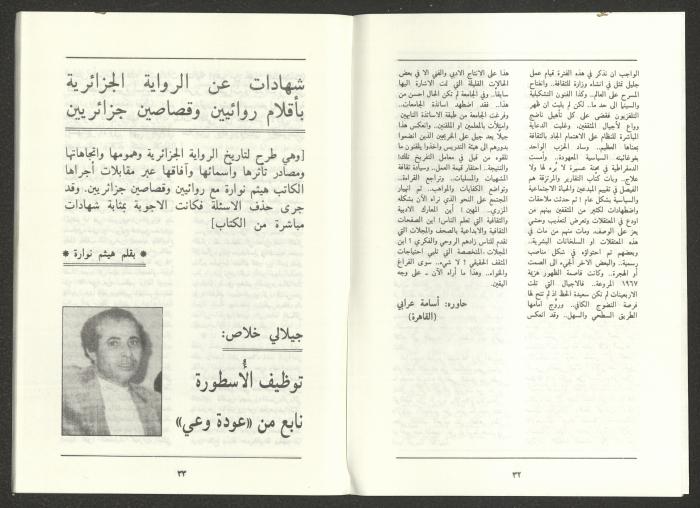 الواجب ان نذكر في هذه الفترة قيام عمل
جليل تمثل في انشاء وزارة للثقافة.. وانفتاح
المسرح على العالم.. وكذا الفنون التشكيلية
والسينما الى حد ما.. لكن لم يلبث ان ظهر
التلفزيون فقضى على كل تأهيل ناضج
وواع لأجيال المثقفين. وغلبت الدعاية
المباشرة للنظام على الاهتمام الجاد بالثقافة
بمعناها العظيم.. وساد الحزب الواحد
بغوغائيته السياسية المعهودة.. وأمست
الديمقراطية في محنة عسيرة لا برء لها ولا
علاج. وبات كتاب التقارير والمرتزقة هم
الفيصل في تقييم المبدعين والحياة الاجتماعية
والسياسية بشكل عام ؛ ثم حدثت ملاحقات
واضطهادات لكثير من المثقفين بينهم من
اودع في المعتقلات وتعرض لتعذيب وحشي
يعز على الوصف، ومات منهم من مات في
هذه المعتقلات او السلخانات البشرية..
وبعضهم تم احتواؤه في شكل مناصب
رسمية.. والبعض الاخر لجيء الى الصمت
أو الهجرة.. وكانت قاصمة الظهور هزيمة
١٩٦٧ المروعة.. فالاجيال التي تلت
الاربعينات لم تكن سعيدة الحظ اذ لم تتح لها
فرصة النضوج الكافي.. وروّج أمامها
الطريق السطحي والسهل.. وقد انعكس
هذا على الانتاج الادبي والفني الا في بعض
الحالات القليلة التي لفت الاشارة اليها
سابقاً.. وفي الجامعة لم تكن الحال احسن من
هذا.. فقد اضطهد اساتذة الجامعات..
وفرغت الجامعة من طبقة الاساتذة النابهين
وامتلأت بالمعلمين او الملقنين. وانعكس هذا
جيلا بعد جيل على الخريجين الذين انضموا
بدورهم الى هيئة التدريس واخذوا يلقنون ما
تلقوه من قبل في معامل التفريخ تلك!
والنتيجة.. احتقار قيمة العمل.. وسيادة ثقافة
المشهيات والمسليات.. وتراجع القراءة..
وتواضع الكفايات والمواهب.. ثم انهيار
المجتمع على النحو الذي نراه الآن بشكله
المزري.. المهين ! أين المعارك الادبية
والثقافية التي تعلم الناس! اين الصفحات
الثقافية والابداعية بالصحف والمجلات التي
تقدم للناس زادهم الروحي والفكري ! اين
المجلات المتخصصة التي تلبي احتياجات
المثقف الحقيقي ! لا شيء.. سوى الفراغ
والخواء.. وهذا ما أراه الآن ـ على وجه
اليقين.
حاوره: أسامة عرابي
(القاهرة)
٣٢
شهادات عن الرواية الجزائرية
بأقلام روائيين وقصاصين جزائريين
[وهي طرح لتاريخ الرواية الجزائرية وهمومها واتجاهاتها
ومصادر تأثرها وأسمائها وآفاقها عبر مقابلات أجراها
الكاتب هيثم نوارة مع روائيين وقصاصين جزائريين. وقد
جرى حذف الاسئلة فكانت الاجوبة بمثابة شهادات
مباشرة من الكتاب]
* بقلم هيثم نوارة *
جيلالي خلاص:
توظيف الأُسطورة
نابع من «عودة وعي»
٣٣